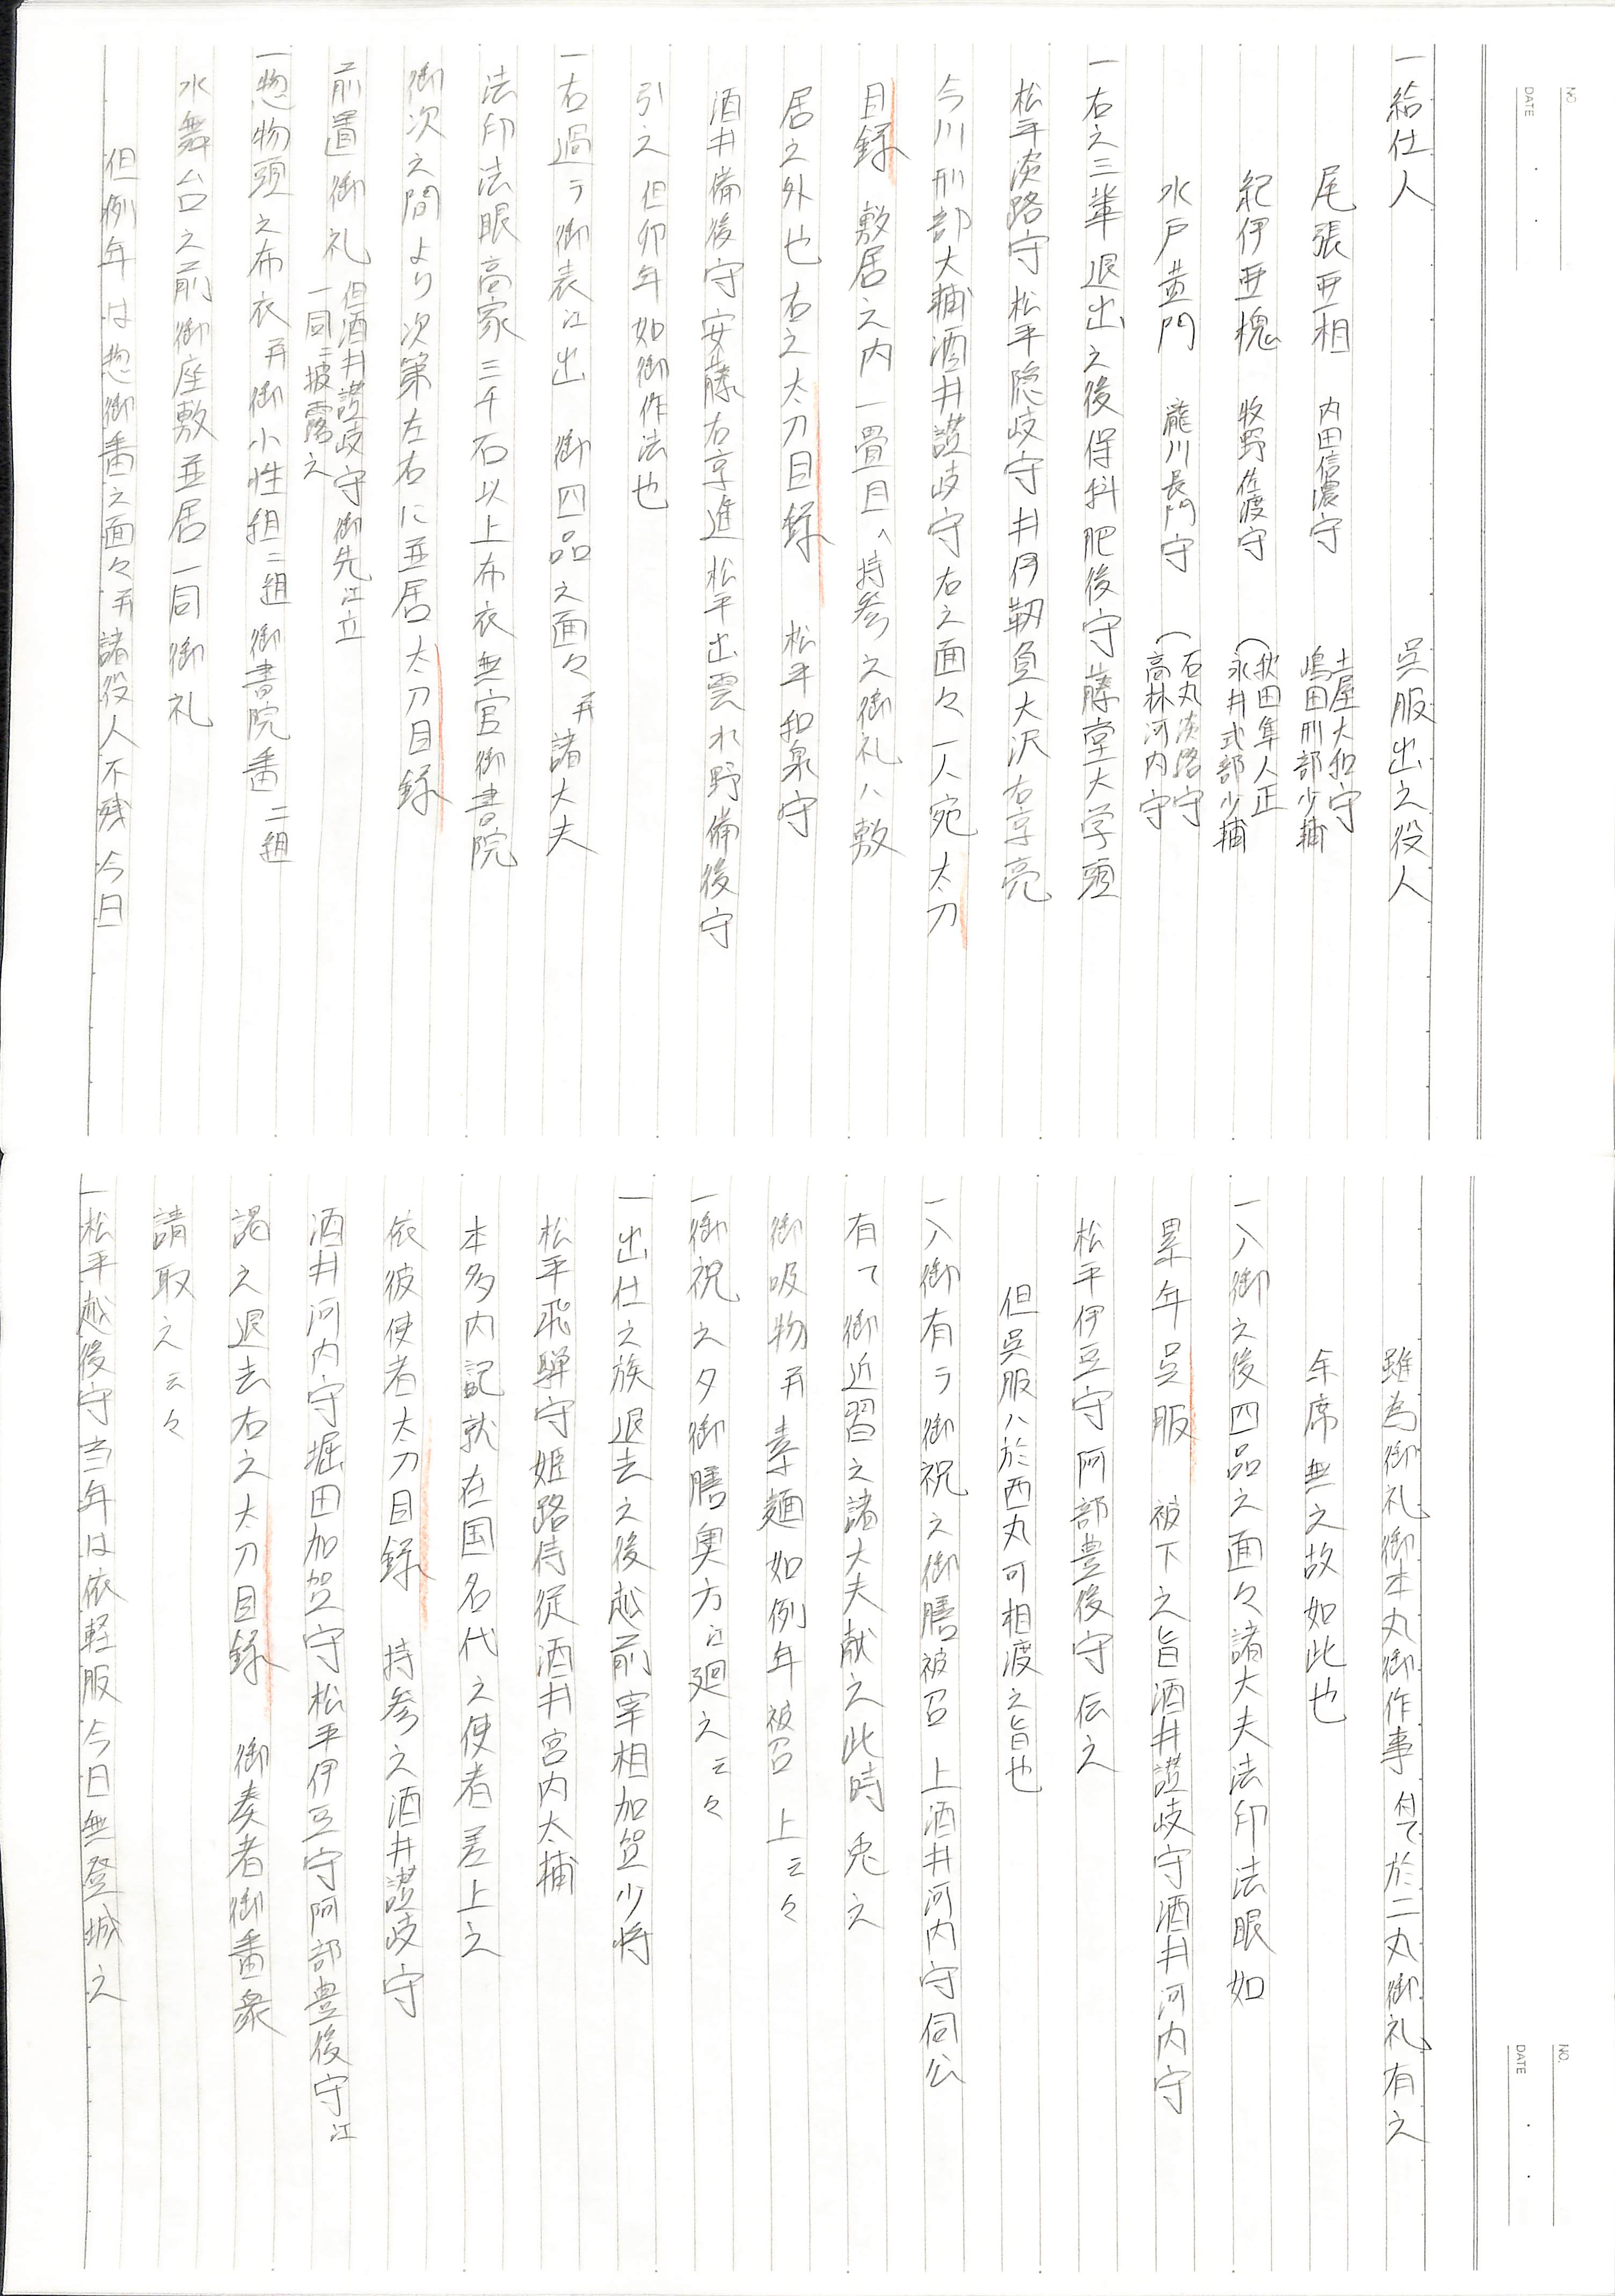 NO.
DATE
一給仕人　呉服出之役人
尾張亜相　内田信濃守　土屋大和守
嶋田刑部少輔
紀伊亜槐　牧野佐渡守　秋田隼人正
永井式部少輔
水戸黄門　瀧川長門守　石丸淡路守
高林河内守
一右之三輩退出之後保科肥後守藤堂大学頭
松平淡路守松平隠岐守井伊靭負大沢右京亮
今川刑部大輔酒井讃岐守右之面々一人宛太刀
目録　敷居之内一畳目へ持参之御礼ハ敷
居之外也右之太刀目録　松平和泉守
酒井備後守安藤右京進松平出雲水野備後守
引之但卯年如御作法也
一右過テ御表江出　御四品之面々并諸大夫
法印法眼高家三千石以上布衣無官御書院
御次之間より次第左右に並居太刀目録
前置御礼　但酒井讃岐守御先江立
一同ニ披露之
一惣物頭之布衣并御小性組二組御書院番二組
水舞台之前御座敷並居一同御礼
但例年は惣御番之面々并諸役人不残今日
NO.
DATE
雖為御礼御本丸御作事　付て於二丸御礼有之
年席無之故如此也
一入御之後四品之面々諸大夫法印法眼如
累年呉服　被下之旨酒井讃岐守酒井河内守
松平伊豆守阿部豊後守伝之
但呉服ハ於西丸可相渡之旨也
一入御有テ御祝之御膳被召　上酒井河内守伺公
有て御近習之諸大夫献之此時兎之
御吸物并素麺如例年被召　上云々
一御祝之夕御膳奥方江廻之云々
一出仕之族退去之後越前宰相加賀少将
松平飛騨守姫路侍従酒井宮内太輔
本多内記就在国名代之使者差上之
依彼使者太刀目録　持参之酒井讃岐守
酒井河内守堀田加賀守松平伊豆守阿部豊後守江
謁之退去右之太刀目録　御奏者御番衆
請取之云々
一松平越後守当年は依軽服今日無登城之